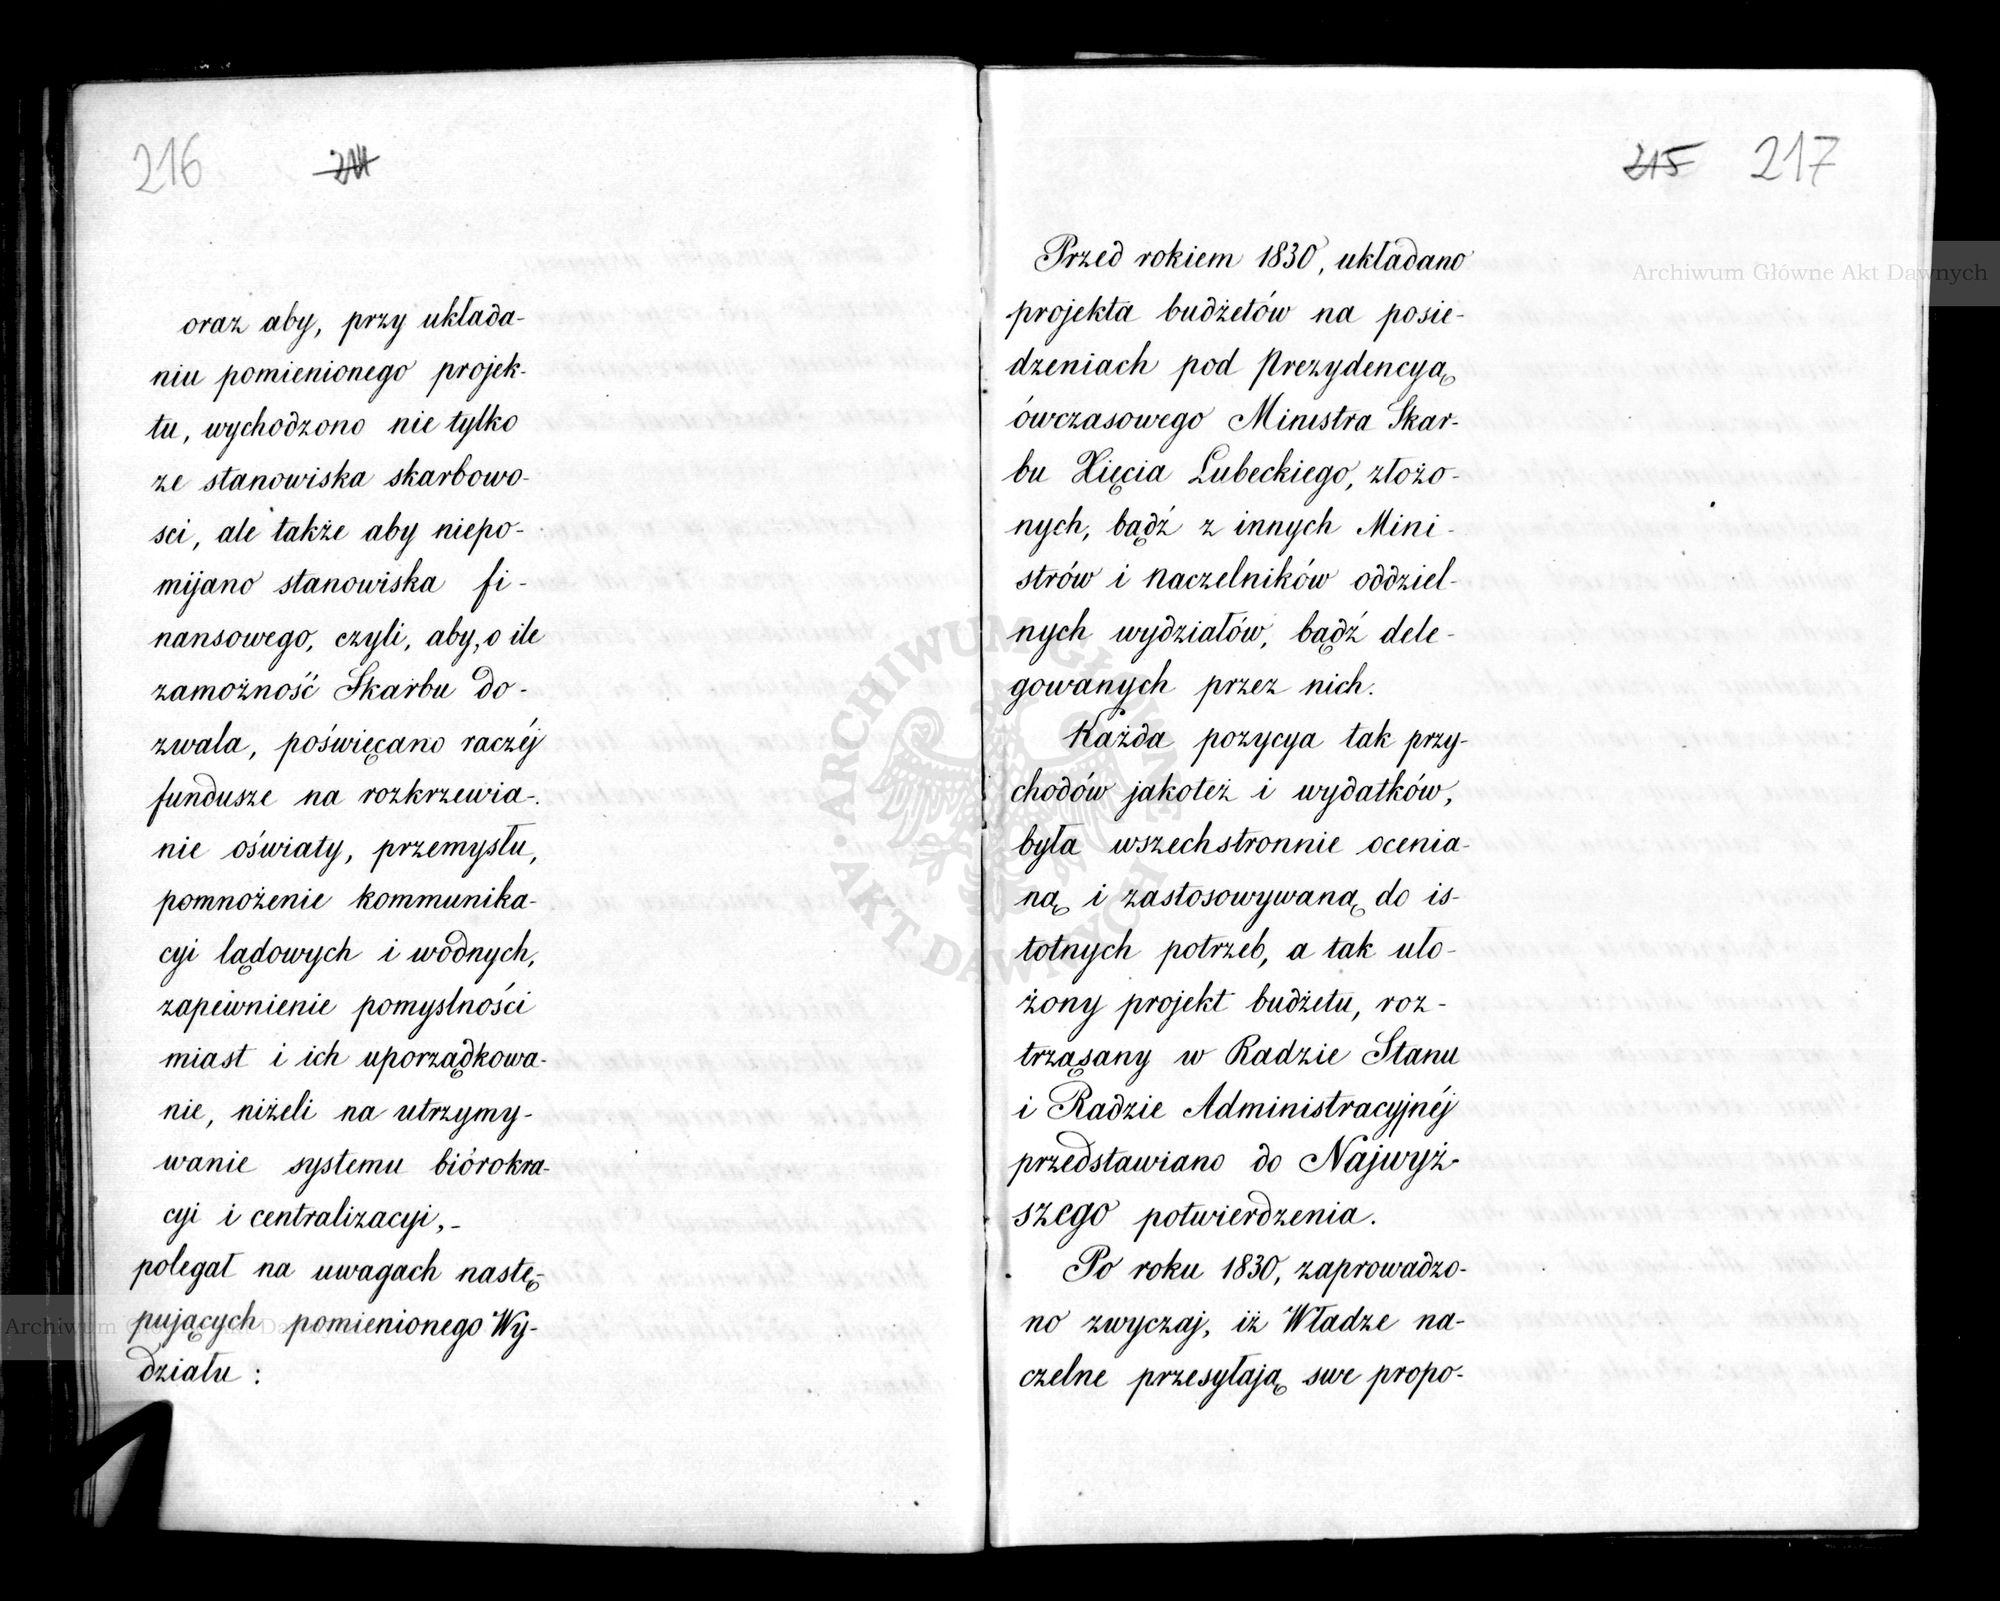 216 214
oraz aby, przy układa-
niu pomienionego projek-
tu, wychodzono nie tylko
ze stanowiska skarbowo-
sci, ale także aby niepo-
mijano stanowiska fi-
nansowego, czyli, aby, o ile
zamożność Skarbu do-
zwala, poświęcano raczéj
fundusze na rozkrzewia-
nie oświaty, przemysłu,
pomnożenie kommunika-
cyi lądowych i wodnych,
zapewnienie pomyslności
miast i ich uporządkowa-
nie, niżeli na utrzymy-
wanie systemu biórokra-
cyi i centralizacyi,-
polegał na uwagach nastę-
pujących pomienionego Wy-
działu:
215 217
Przed rokiem 1830, układano
projekta budżetów na posie-
dzeniach pod Prezydencyą
ówczasowego Ministra Skar-
bu Xięcia Lubeckiego, złożo-
nych, bądź z innych Mini-
strów i Naczelników oddziel-
nych wydziałów, bądź dele-
gowanych przez nich.
Każda pozycya tak przy-
chodów jakoteż i wydatków,
była wszechstronnie ocenia-
ną i zastosowywaną do is-
totnych potrzeb, a tak uło-
żony projekt budżetu, roz-
trząsany w Radzie Stanu
i Radzie Administracyjnéj
przedstawiano do Najwyż-
szego potwierdzenia.
Po roku 1830, zaprowadzo-
no zwyczaj, iż Władze na-
czelne przesyłają swe propo-
Archiwum Główne Akt Dawnych
Archiwum Główne Akt Dawnych
ARCHIWUM GŁÓWNE AKT DAWNYCH